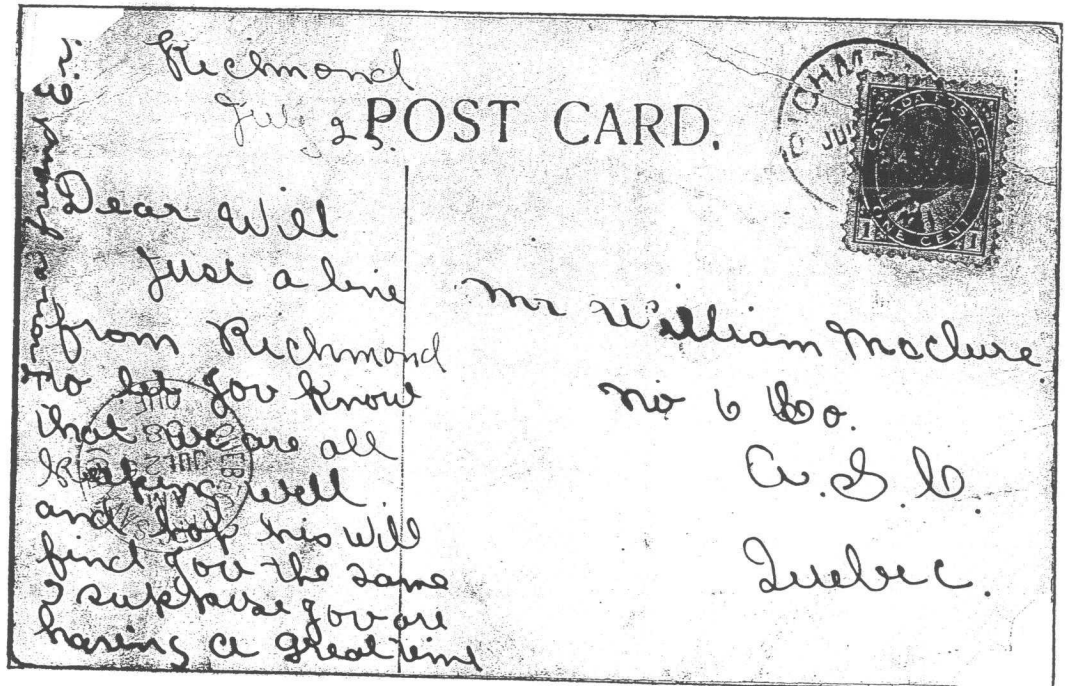 Richmond
July 25.
POST CARD.
Dear Will
Just a line
from Richmond
to let you know
that we are all
keeping well
and hop his will
find you the same
I suppose you are
having a great time
from a friend E.
Mr William Maclure
No 6 Co.
A.S.C.
Quebec.
RICHM
JUL
CANADA POSTAGE
1 ONE CENT 1
QUEBEC
JUL 2
08
QUE